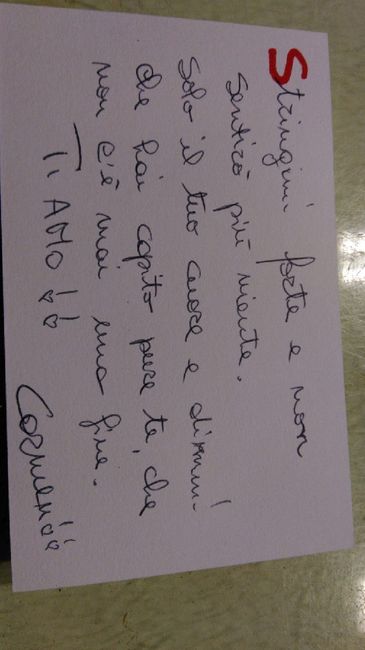 Stringimi forte e non
sentirò più niente.
Solo il tuo cuore e dimmi
che hai capito pure te, che
non c'è mai una fine.
Ti AMO!!